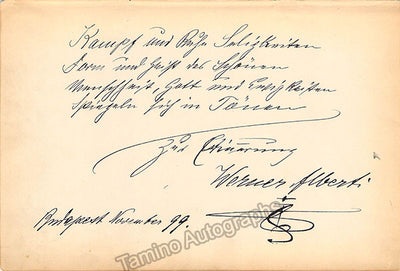 Kampf und Ruhe Seligkeiten
Form und Geist des Schönen
Menschheit, Gott und Ewigkeiten
Spiegeln sich in Tönen
Zur Erinnerung
Werner Alberti
Budapest November 99.
Tamino Autographs